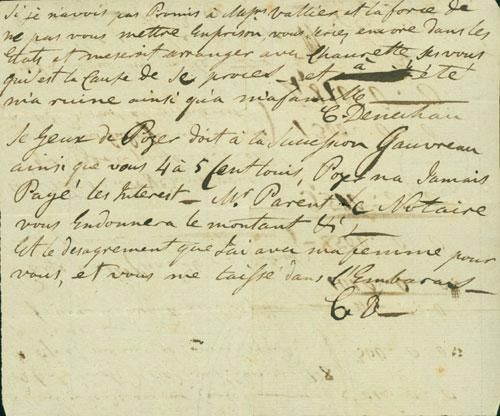 Si je n'avois pas Promis à Mrs vallier et la force de
ne pas vous mettre Enprison vous seriez encore dans les
Etats et me serait arranger avec Chaurette ses vous
qui est la Cause de se procès et à été
m'a ruine ainsi qu'a ma famille
C. Denechau
Le Geux de Poyer doit à la Succession Gauvreau
ainsi que vous 4 à 5 Cent louis, Poyer n'a Jamais
Payé les Interest – Mr Parent Notaire
vous Endonnera le montant &c,
Et le desagrement que J'ai avec ma femme pour
vous, et vous me laissé dans L'Embaras
C. D